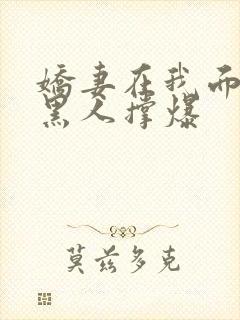 娇妻在我面
黑人撑爆
莫兹多克